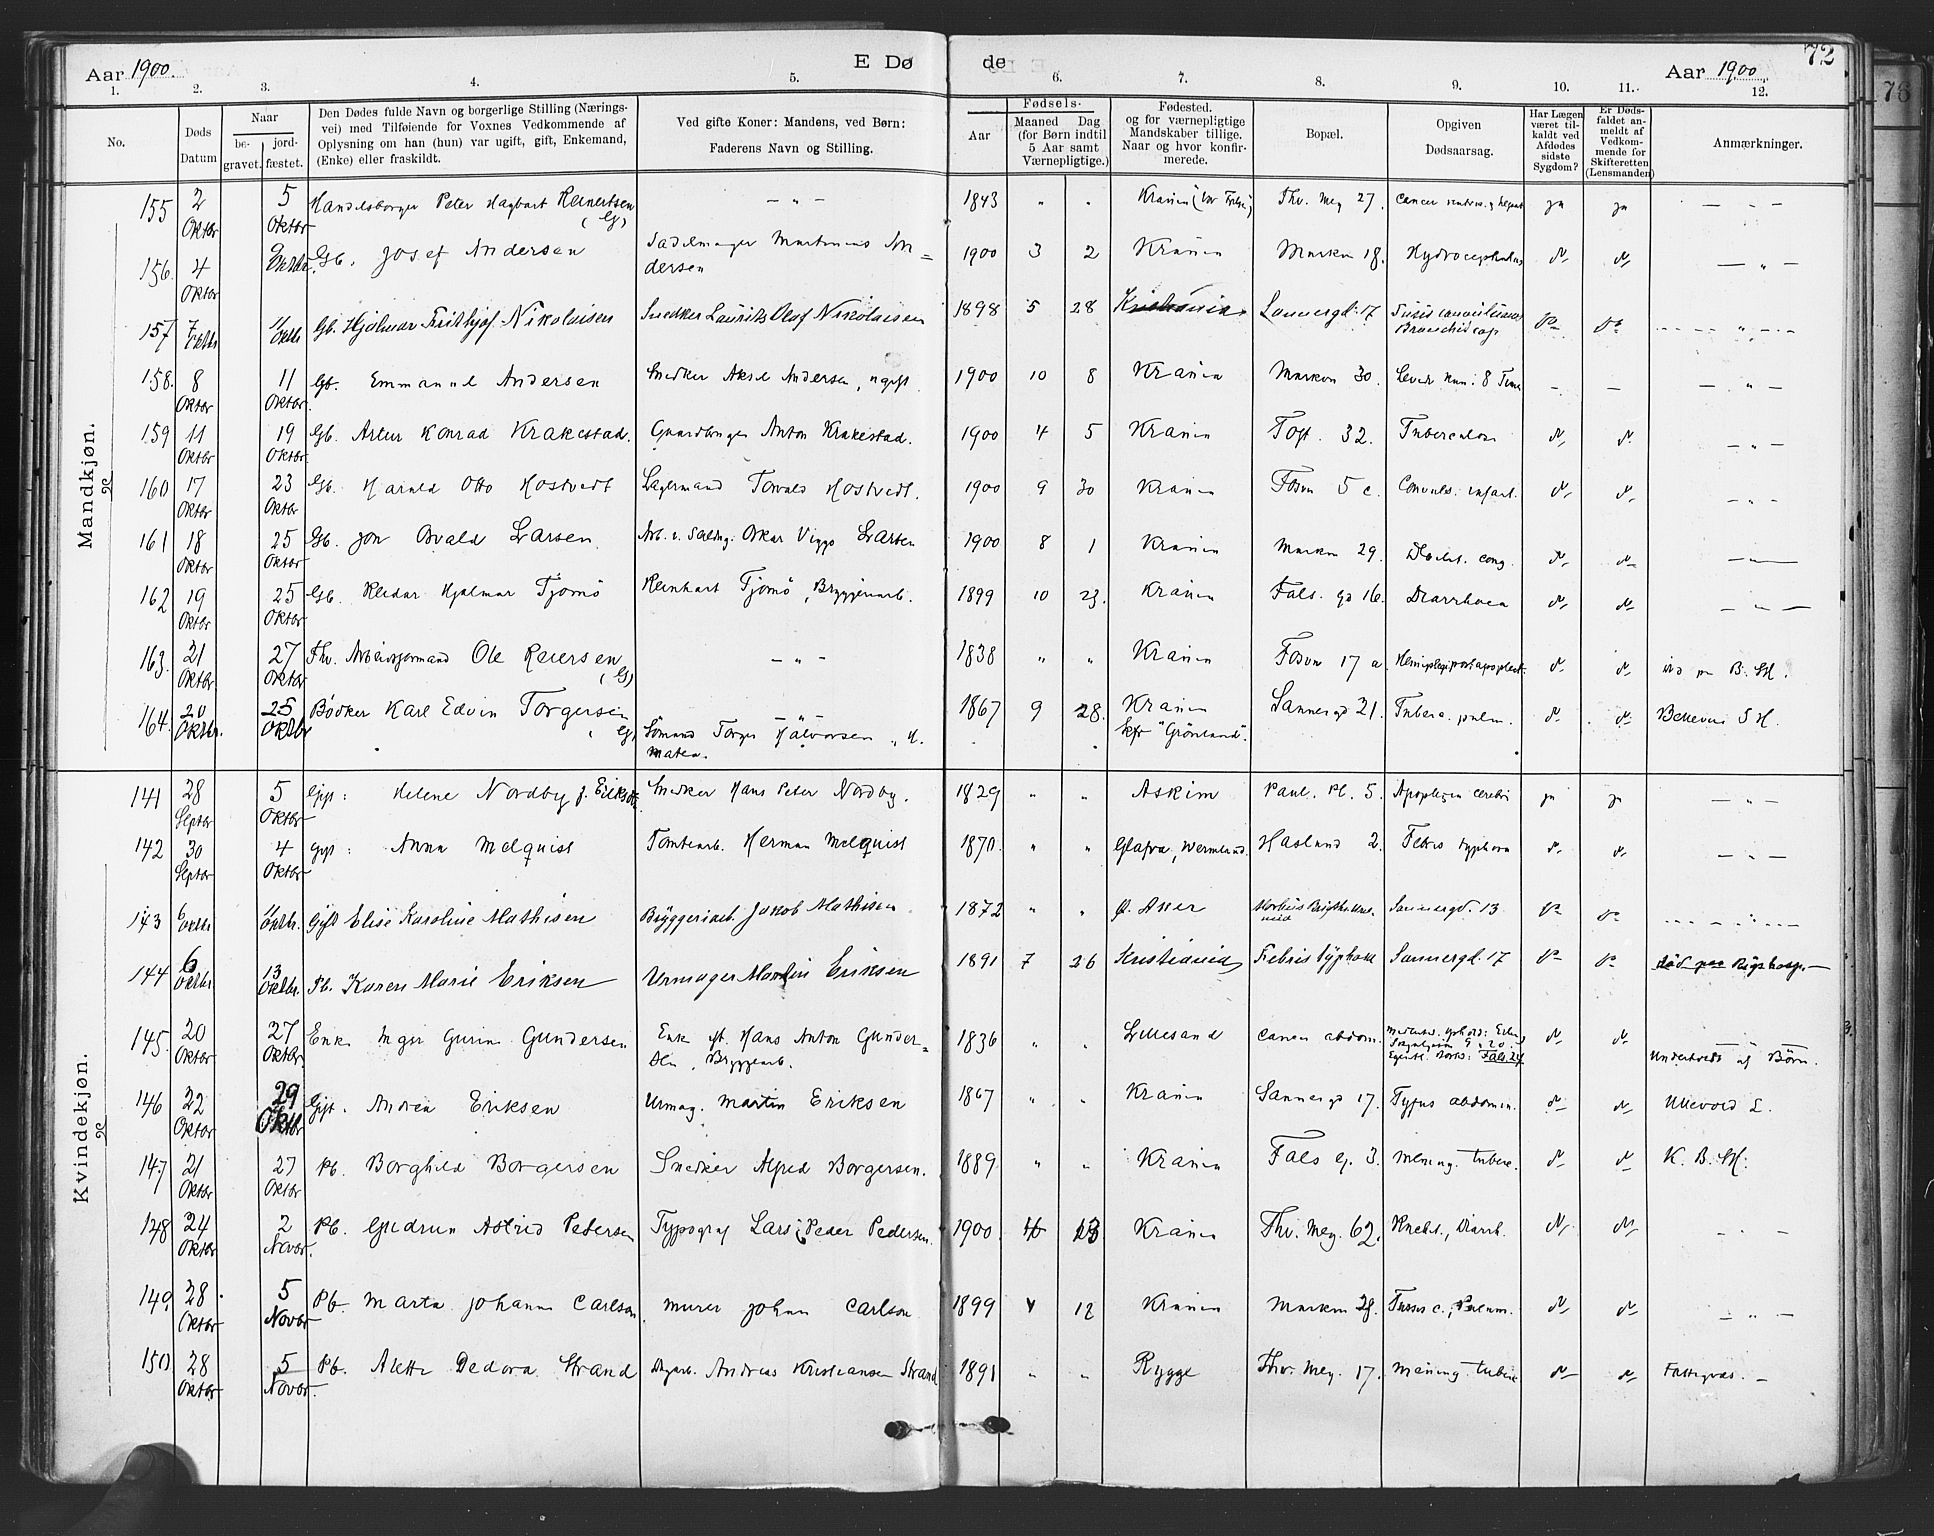 Aar 1900. E Dø de Aar 1900. 72
76
1. 2. 3. 4. 5. 6. 7. 8. 9. 10. 11. 12.
No.
Døds Datum
Naar
be-gravet.
jord-fæstet.
Den Dødes fulde Navn og borgerlige Stilling (Nærings-
vei) med Tilføiende for Voxnes Vedkommende af
Oplysning om han (hun) var ugift, gift, Enkemand,
(Enke) eller fraskildt.
Ved gifte Koner: Mandens, ved Børn:
Faderens Navn og Stilling.
Fødsels-
Aar
Maaned Dag
(for Børn indtil
5 Aar samt
Værnepligtige.)
Fødested.
og for værnepligtige
Mandskaber tillige.
Naar og hvor konfir-
merede.
Bopæl.
Opgiven
Dødsaarsag.
Har Lægen
været til-
kaldt ved
Afdødes
sidste
Sygdom?
Er Døds-
faldet an-
meldt af
Vedkom-
mende for
Skifteretten
(Lensmanden)
Anmærkninger.
Mandkjøn.
155 2 Oktbr 5 Oktbr Handelsborger Peter Hagbart Reinertsen (G) — " — 1843 " " Krania Thv. Mey 27. Cancer ja ja — " —
156. 4 Oktbr Oktbr. Gb. Josef Andersen Sadelmager Martinius An=dersen 1900 3 2 Krania Marken 18. Hydrocephalus — " —
157 7 Oktbr 11 Oktbr Gb. Hjalmar Frithjof Nikolaisen Snedker Laurits Olaf Nikolaisen 1898 5 28 Kristiania Sannergd. 17 — " —
158. 8 Oktbr 11 Oktbr. Gb. Emmanuel Andersen Snedker Aksel Andersen, ugift 1900 10 8 Krania Marken 30. Levede kun: 8 Time — — — " —
159 11 Oktbr 19 Oktbr Gb. Artur Konrad Krakestad. Gaardbruger Anton Krakestad. 1900 4 5 Krania Toft. 32. Tuberculose — " —
160 17 Oktbr 23 Oktbr Gb. Harald Otto Hostvedt Lagermand Torvald Hostvedt. 1900 9 30 Krania Fosvn 5 c. Convuls. infant. — " —
161 18 Oktbr 25 Oktbr Gb. Jon Osvald Larsen. Oskar Viggo Larsen 1900 8 1 Krania Marken 29. cong.
162 19 Oktbr 25 Oktbr Gb. Reidar Hjalmar Tjomö Reinhart Tjomö, Bryggeriarb. 1899 10 23. Krania Fals. gd 16. Diarrhoea — " —
163. 21 Oktbr 27 Oktbr Fhv. Arbeidsformand Ole Reiersen (G) — " — 1838 " " Krania Fosvn 17 a
164. 20 Oktbr. 25 Oktbr Bödker Karl Edvin Torgersen (G) Sömand Torger Halvorsen 1867 9 28. Krania "Grönland". Sannergd 21. Tuberc. pulm.
Kvindekjøn.
141 28 Septbr 5 Oktbr Gift: Helene Nordby f. Eriksen Snedker Hans Peter Nordby. 1829 " " Askim Paul. Pl. 5. Apoplexia cerebri ja ja — " —
142 30 Septbr 4 Oktbr Gift: Anna Melquist Tomtearb. Herman Melquist 1870. " " Glafva, Wermland. Haslund 2. Febris typhora — " —
143 6 Oktbr 11 Oktbr. Gift Elise Karoline Mathisen Bryggeriarb. Jakob Mathisen. 1872 " " Ø. Aker Sannergd. 13 — " —
144 6 Oktbr 13 Oktbr. Pb. Karen Marie Eriksen Urmager Martin Eriksen 1891 7 26 Kristiania Febris typhoid Sannergd. 17 död paa Rigshosp.
145. 20 Oktbr 27 Oktbr Enke Gurine Gundersen Enk. eft. Hans Anton Gunder=sen, Bryggearb. 1836 " " Lillesand Cancer abdom. Fals. 24 Understøttet af Børn.
146 22 Oktbr 29 Oktbr Gift. Andrea Eriksen Urmag. Martin Eriksen 1867 " " Krania Sannergd 17. Tyfus abdomin. Ullevold L.
147 21 Oktbr 27 Oktbr Pb. Borghild Borgersen Snedker Alfred Borgersen. 1889. " " Krania Fals g. 3. Mening. tuberc. K. B. SH.
148 24 Oktbr 2 Novbr. Pb. Gudrun Astrid Pedersen Typograf Lars Peder Pedersen. 1900 Krania Thv. Mey. 62. Rachit., Diarrh. — " —
149. 28. Oktbr 5 Novbr Pb. Marta Johanne Carlson. Murer Johan Carlson 1899 12 Krania Marken 28. — " —
150 28 Oktbr 5 Novbr. Pb. Alette Dedora Strand Andreas Kristiansen Strand 1891 " " Rygge Thv. Mey. 17. Mening. tuberc Fattigvæs. —